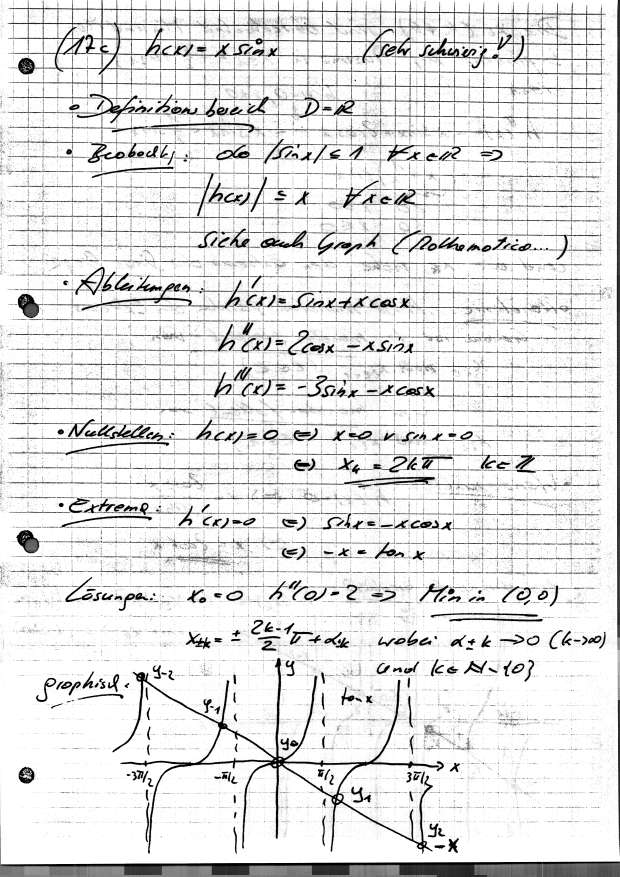 (17c) h(x) = x sinx (sehr schwierig!)
• Definitionsbereich D=ℝ
• Beobachtg: da |sinx| ≤ 1 ∀x∈ℝ ⇒
|h(x)| ≤ x ∀x∈ℝ
siehe auch Graph (Mathematica...)
• Ableitungen: h'(x) = sinx + x cosx
h''(x) = 2cosx - x sinx
h'''(x) = -3sinx - x cosx
• Nullstellen: h(x)=0 ⇔ x=0 ∨ sinx=0
⇔ x_k = 2kπ k∈ℤ
• Extrema: h'(x)=0 ⇔ sinx = -x cosx
⇔ -x = tan x
Lösungen: x₀=0 h''(0)=2 ⇒ Min in (0,0)
x_±k = ± (2k-1)/2 π + α_±k wobei α_±k → 0 (k→∞)
und k∈ℕ-{0}
graphisch: y-2 y tan x
y-1
y0
-3π/2 -π/2 π/2 3π/2 x
y1
y2
-x